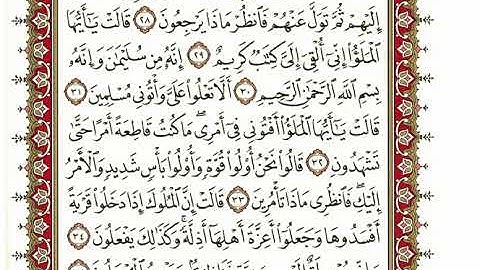 إِلَيْهِمْ ثُمَّ تَوَلَّ عَنْهُمْ فَٱنظُرْ مَاذَا يَرْجِعُونَ ٢٨ قَالَتْ يَـٰٓأَيُّهَا
ٱلْمَلَؤُا۟ إِنِّىٓ أُلْقِىَ إِلَىَّ كِتَـٰبٌ كَرِيمٌ ٢٩ إِنَّهُۥ مِن سُلَيْمَـٰنَ وَإِنَّهُۥ
بِسْمِ ٱللَّهِ ٱلرَّحْمَـٰنِ ٱلرَّحِيمِ ٣٠ أَلَّا تَعْلُوا۟ عَلَىَّ وَأْتُونِى مُسْلِمِينَ ٣١
قَالَتْ يَـٰٓأَيُّهَا ٱلْمَلَؤُا۟ أَفْتُونِى فِىٓ أَمْرِى مَا كُنتُ قَاطِعَةً أَمْرًا حَتَّىٰ
تَشْهَدُونِ ٣٢ قَالُوا۟ نَحْنُ أُو۟لُوا۟ قُوَّةٍ وَأُو۟لُوا۟ بَأْسٍ شَدِيدٍ وَٱلْأَمْرُ
إِلَيْكِ فَٱنظُرِى مَاذَا تَأْمُرِينَ ٣٣ قَالَتْ إِنَّ ٱلْمُلُوكَ إِذَا دَخَلُوا۟ قَرْيَةً
أَفْسَدُوهَا وَجَعَلُوٓا۟ أَعِزَّةَ أَهْلِهَآ أَذِلَّةً ۖ وَكَذَٰلِكَ يَفْعَلُونَ ٣٤